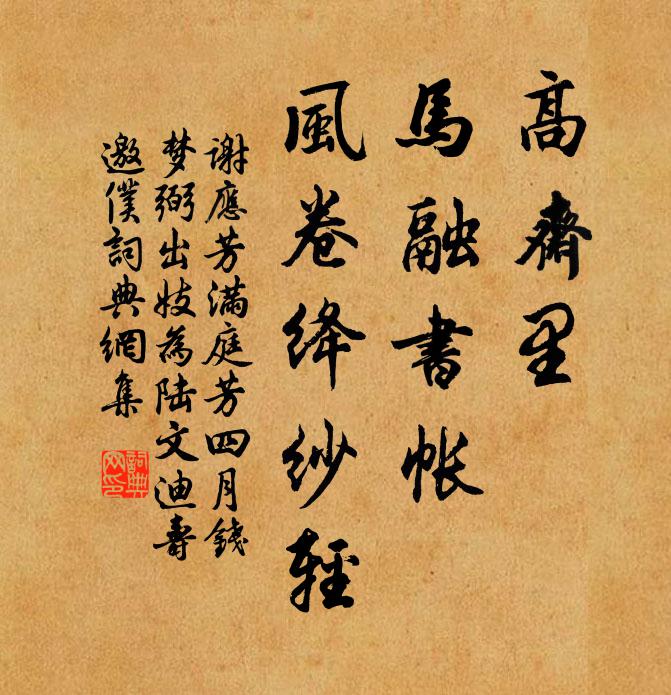 高齋里
馬融書帳
風卷絳紗輕
謝應芳滿庭芳四月錢
梦弼出妓為陆文迪壽
邀僕詞典網集
詞典网印